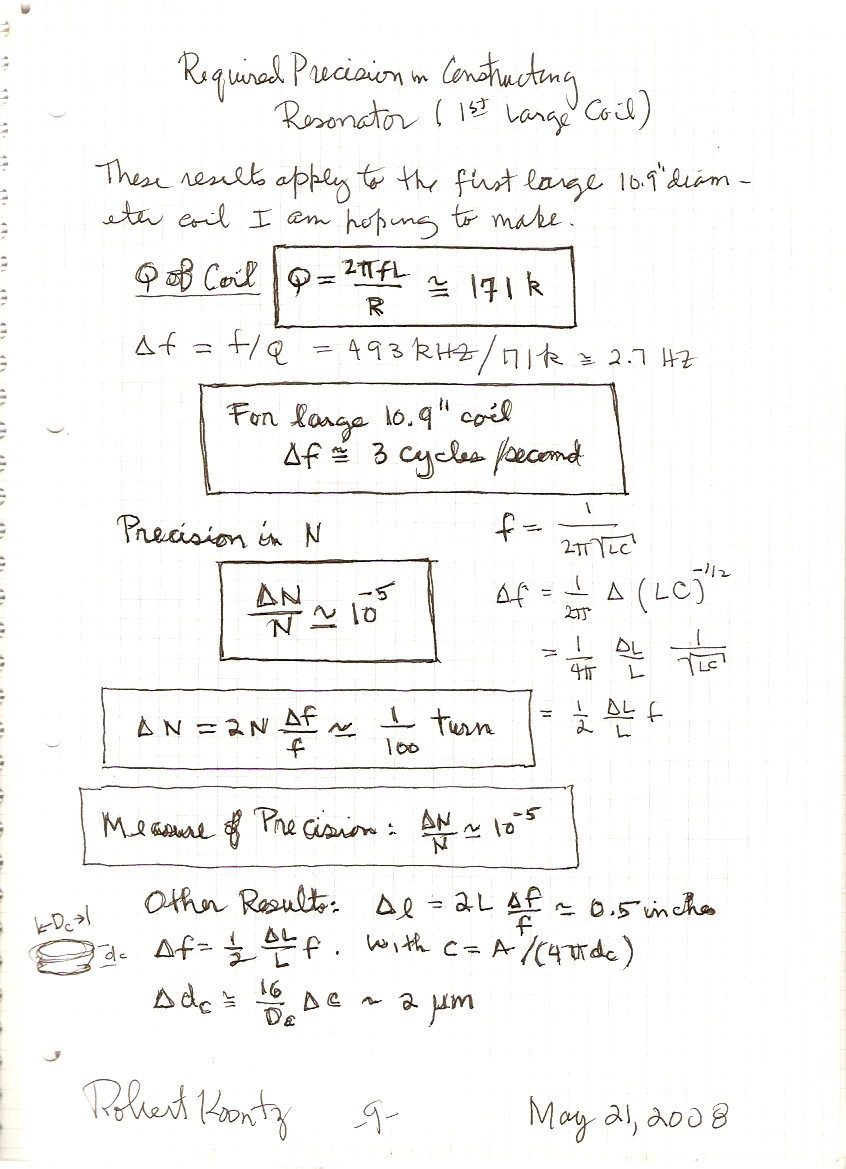 Required Precision in Constructing
Resonator (1st Large Coil)
These results apply to the first large 10.9" diam-
eter coil I am hoping to make.
Q of Coil Q = 2πfL/R ≅ 171k
Δf = f/Q = 493 kHz/171k ≅ 2.7 Hz
For large 10.9" coil
Δf ≅ 3 cycles/second
Precision in N
f = 1/(2π√LC)
ΔN/N ≃ 10^-5
Δf = 1/2π Δ(LC)^-1/2
= 1/4π ΔL/L 1/√LC
ΔN = 2N Δf/f ≃ 1/100 turn
= 1/2 ΔL/L f
Measure of Precision: ΔN/N ~ 10^-5
Other Results: Δl = 2L Δf/f ≃ 0.5 inches
|←Dc→|
dc
Δf = 1/2 ΔL/L f. With C = A/(4πdc)
Δdc ≅ 16/Dc ΔC ~ 2 μm
Robert Koontz -9- May 21, 2008